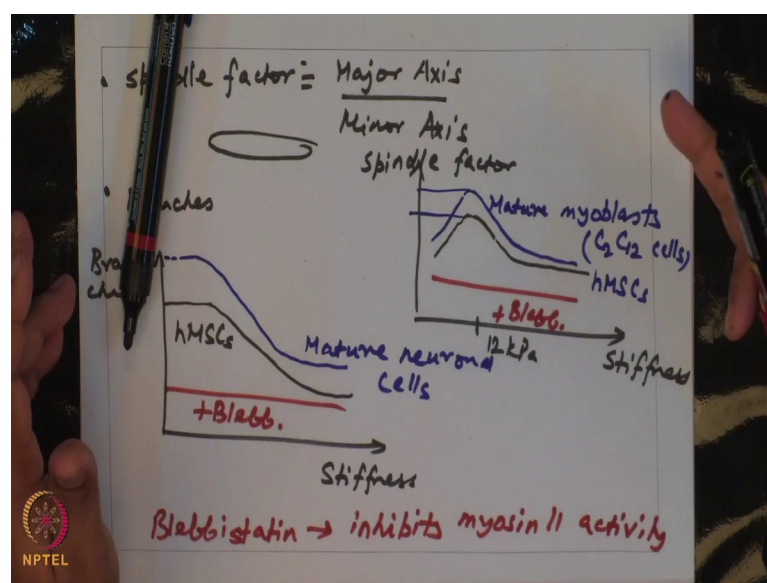 factor = Major Axis
Minor Axis
spindle factor
Mature myoblasts
(C2C12 cells)
hMSCs
+Blebb.
12 kPa
Stiffness
hMSCs
Mature neuronal
cells
+Blebb.
Stiffness
Blebbistatin → inhibits myosin II activity
NPTEL